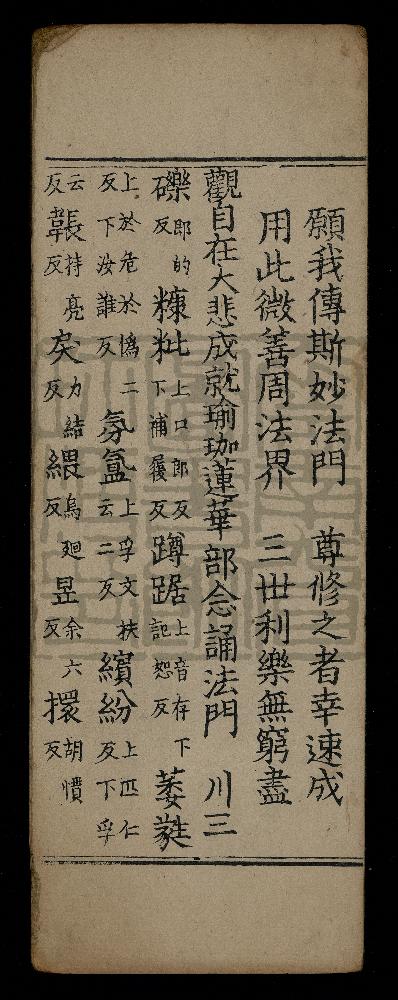 願我傳斯妙法門　尊修之者幸速成
用此微善周法界　三世利樂無窮盡
觀自在大悲成就瑜珈蓮華部念誦法門　川三
礫郎的反糠粃上口郎反下補履反蹲踞上音存下記恕反萎蕤
上於危於僞二反下汝誰反氛氳上孚文扶云二反繽紛上匹仁反下孚
云反韔持亮反戾力結反烏廻反昱余六反擐胡慣反